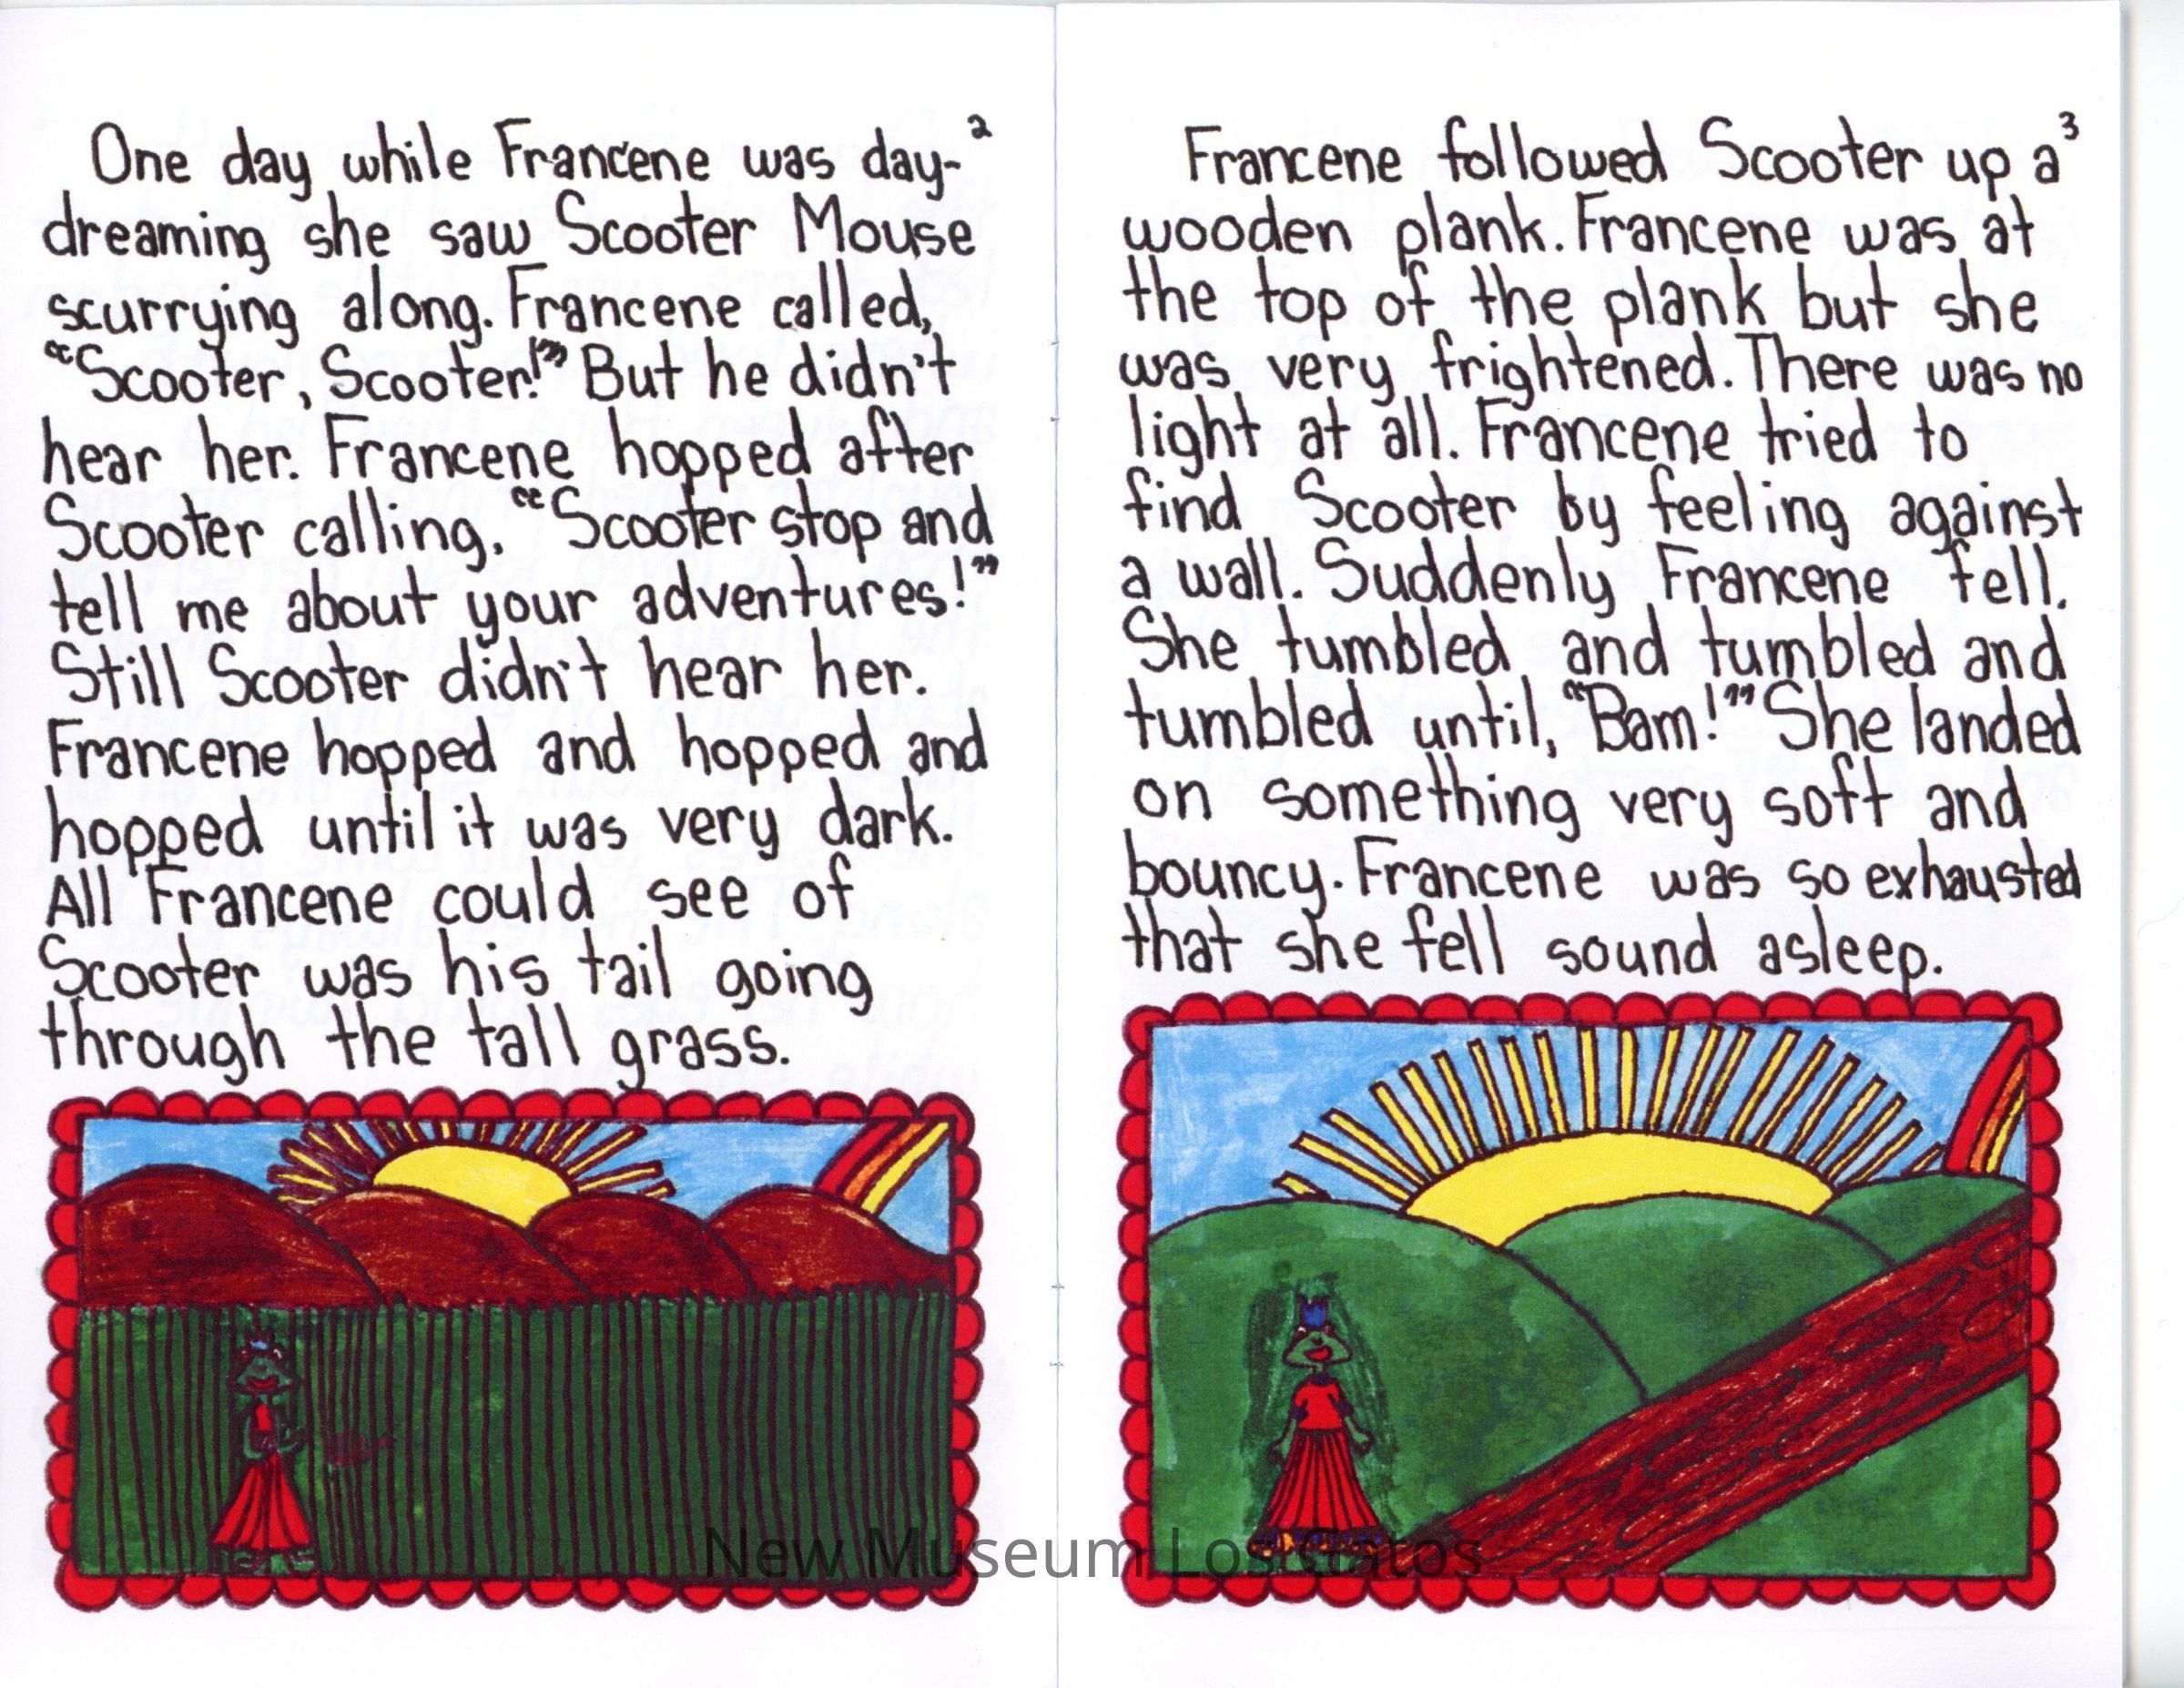 2
One day while Francene was day-
dreaming she saw Scooter Mouse
scurrying along. Francene called,
“Scooter, Scooter!” But he didn't
hear her. Francene hopped after
Scooter calling, “Scooter stop and
tell me about your adventures!”
Still Scooter didn't hear her.
Francene hopped and hopped and
hopped until it was very dark.
All Francene could see of
Scooter was his tail going
through the tall grass.
3
Francene followed Scooter up a
wooden plank. Francene was at
the top of the plank but she
was very frightened. There was no
light at all. Francene tried to
find Scooter by feeling against
a wall. Suddenly Francene fell.
She tumbled and tumbled and
tumbled until, “Bam!” She landed
on something very soft and
bouncy. Francene was so exhausted
that she fell sound asleep.
New Museum Los Gatos